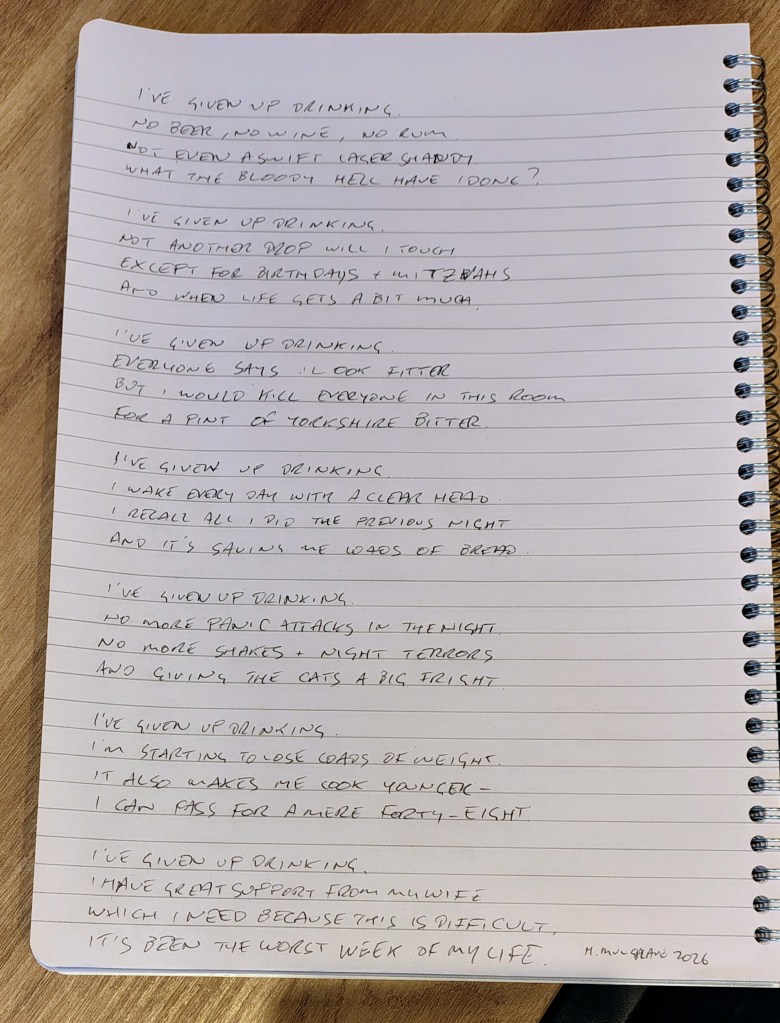 I'VE GIVEN UP DRINKING.
NO BEER, NO WINE, NO RUM.
NOT EVEN A SWIFT LAGER SHANDY
WHAT THE BLOODY HELL HAVE I DONE?
I'VE GIVEN UP DRINKING.
NOT ANOTHER DROP WILL I TOUCH
EXCEPT FOR BIRTHDAYS + MITZVAHS
AND WHEN LIFE GETS A BIT MUCH.
I'VE GIVEN UP DRINKING.
EVERYONE SAYS I LOOK FITTER
BUT I WOULD KILL EVERYONE IN THIS ROOM
FOR A PINT OF YORKSHIRE BITTER.
I'VE GIVEN UP DRINKING.
I WAKE EVERY DAY WITH A CLEAR HEAD.
I RECALL ALL I DID THE PREVIOUS NIGHT
AND IT'S SAVING ME LOADS OF BREAD.
I'VE GIVEN UP DRINKING.
NO MORE PANIC ATTACKS IN THE NIGHT.
NO MORE SHAKES + NIGHT TERRORS
AND GIVING THE CATS A BIG FRIGHT.
I'VE GIVEN UP DRINKING.
I'M STARTING TO LOSE LOADS OF WEIGHT.
IT ALSO MAKES ME LOOK YOUNGER -
I CAN PASS FOR A MERE FORTY-EIGHT.
I'VE GIVEN UP DRINKING.
I HAVE GREAT SUPPORT FROM MY WIFE
WHICH I NEED BECAUSE THIS IS DIFFICULT.
IT'S BEEN THE WORST WEEK OF MY LIFE.
2026